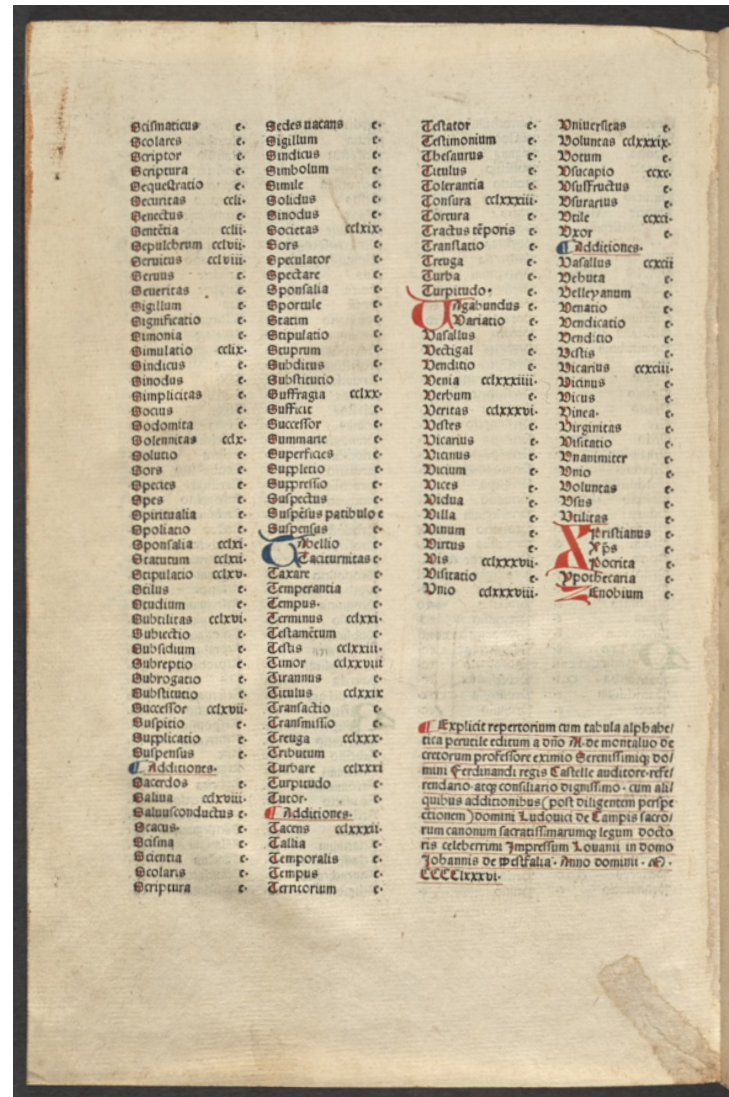 Scismaticus e·
Scolares e·
Scriptor e·
Scriptura e·
Sequestratio e·
Securitas ccli·
Senectus e·
Sentētia cclii·
Sepulchrum cclvii·
Seruitus cclviii·
Seruus e·
Seueritas e·
Sigillum e·
Significatio e·
Simonia e·
Simulatio cclix·
Sindicus e·
Sinodus e·
Simplicitas e·
Socius e·
Sodomita e·
Solennitas cclx·
Solutio e·
Sors e·
Species e·
Spes e·
Spiritualia e·
Spoliatio e·
Sponsalia cclxi·
Statutum cclxii·
Stipulatio cclxv·
Stilus e·
Studium e·
Subtilitas cclxvi·
Subiectio e·
Subsidium e·
Subreptio e·
Subrogatio e·
Substitutio e·
Successor cclxvii·
Suspitio e·
Supplicatio e·
Suspensus e·
¶ Additiones·
Sacerdos e·
Saliua cclxviii·
Saluusconductus e·
Scacus· e·
Scisma e·
Scientia e·
Scolaris e·
Scriptura e·
Sedes uacans e·
Sigillum e·
Sindicus e·
Simbolum e·
Simile e·
Solidus e·
Sinodus e·
Societas cclxix·
Sors e·
Speculator e·
Spectare e·
Sponsalia e·
Sportule e·
Statim e·
Stipulatio e·
Stuprum e·
Subditus e·
Substitutio e·
Suffragia cclxx·
Sufficit e·
Successor e·
Summarie e·
Superficies e·
Suppletio e·
Suppressio e·
Suspectus e·
Suspēsus patibulo e
Suspensus e·
TAbellio e·
Taciturnitas e·
Taxare e·
Temperantia e·
Tempus· e·
Terminus cclxxi·
Testamētum e·
Testis cclxxiii·
Timor cclxxviii
Tirannus e·
Titulus cclxxix
Transactio e·
Transmissio e·
Treuga cclxxx·
Tributum e·
Turbare cclxxxi
Turpitudo e·
Tutor· e·
¶ Additiones·
Tacens cclxxxii·
Tallia e·
Temporalis e·
Tempus e·
Territorium e·
Testator e·
Testimonium e·
Thesaurus e·
Titulus e·
Tolerantia e·
Tonsura cclxxxiii·
Tortura e·
Tractus tēporis e·
Translatio e·
Treuga e·
Turba e·
Turpitudo· e·
VAgabundus e·
Variatio e·
Vasallus e·
Vectigal e·
Venditio e·
Venia cclxxxiiii·
Verbum e·
Veritas cclxxxvi·
Vestes e·
Vicarius e·
Vicinus e·
Vicium e·
Vices e·
Vidua e·
Villa e·
Vinum e·
Virtus e·
Vis cclxxxvii·
Visitatio e·
Vnio cclxxxviii·
Vniuersitas e·
Voluntas cclxxxix·
Votum e·
Vsucapio ccxc·
Vsusfructus e·
Vsurarius e·
Vtile ccxci·
Vxor e·
¶ Additiones·
Vasallus ccxcii
Vehuta e·
Velleyanum e·
Venatio e·
Vendicatio e·
Venditio e·
Vestis e·
Vicarius ccxciii·
Vicinus e·
Vicus e·
Vinea· e·
Virginitas e·
Visitatio e·
Vnanimiter e·
Vnio e·
Voluntas e·
Vsus e·
Vtilitas e·
Xpristianus e·
Xp̄s e·
Ypocrita e·
Ypothecaria e·
ZEnobium e·
¶ Explicit repertorium cum tabula alphabe/
tica perutile editum a dño A. de montaluo de
cretorum professore eximio Serenissimiq; do/
mini Ferdinandi regis Castelle auditore·refe/
rendario·atq; consiliario dignissimo· cum ali/
quibus additionibus (post diligentem perspe
ctionem) domini Ludouici de Campis sacro/
rum canonum sacratissimarumq; legum docto
ris celeberrimi Impressum Louanii in domo
Johannis de westfalia· Anno domini· M·
CCCClxxxvi·